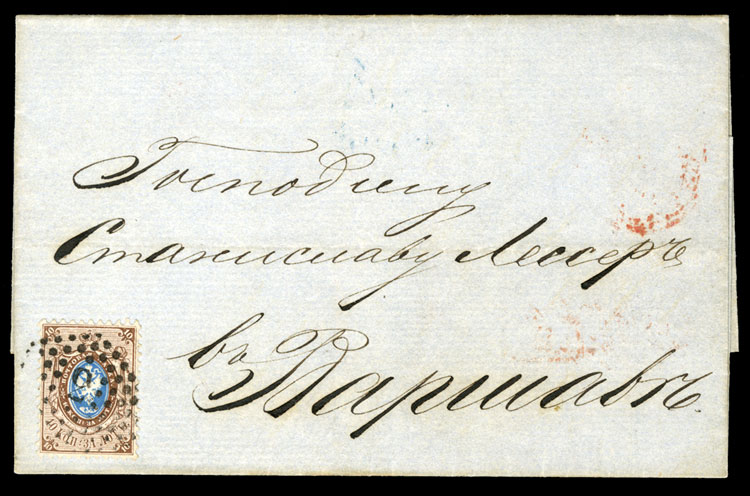 Господину
Станиславу Лессеръ
въ Варшавѣ
10 КОП. ЗА ЛОТЪ